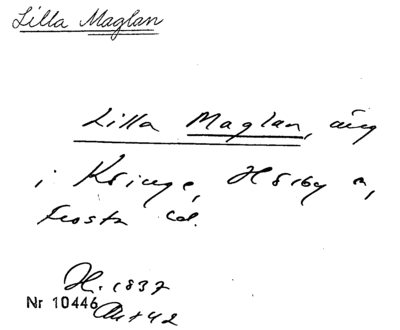 Lilla Maglan
Lilla Maglan, äng
i Kringe, Hörby s,
Frosta hd.
H. 1837
Nr 10446